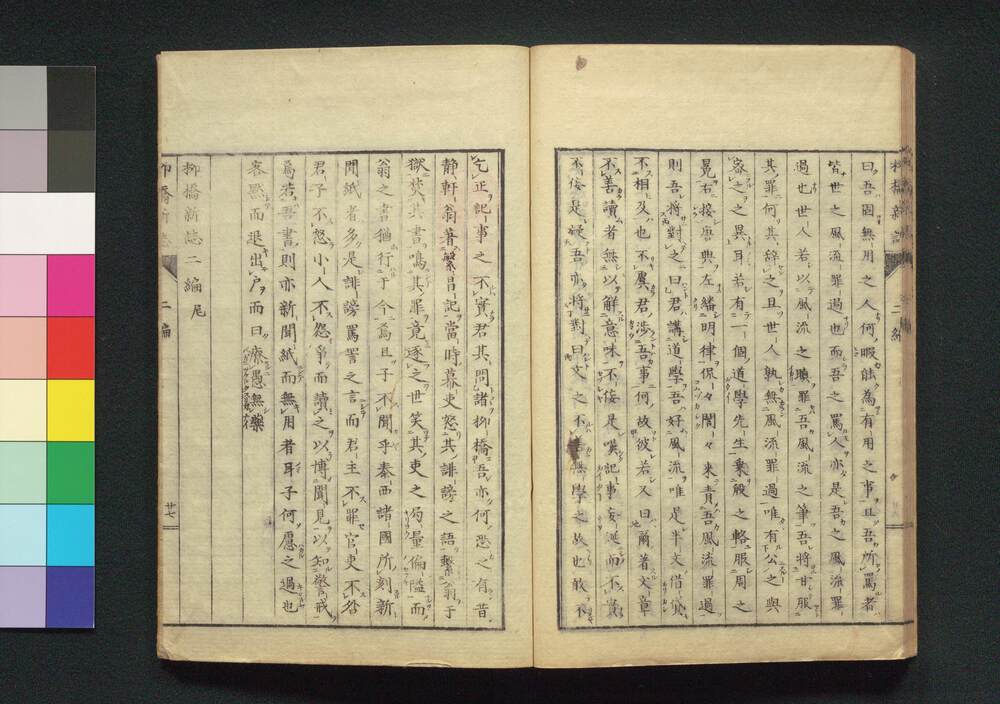 曰吾固無用之人何暇能為有用之事且吾所罵者
皆世之風流罪過也而吾之罵人亦是吾之風流罪
過也世人若以風流之 罪吾風流之筆吾將甘服
其罪何其辭之且世人孰無風流罪過唯有公之與
密之之異耳若有一個道學先生乘殷之輅服周之
冕右接唐典左繙明律保々闇々來責吾風流罪過
則吾將對之曰君講道學吾好風流唯是半文借
不相及也不虞君涉吾事何故彼若又曰爾著文章
不善讀者無以解意味不佞是嘆記事妄誕而不實
不佞是疑吾亦將對曰文之不善無學之故也敢不
乞正記事之不實君其問諸柳橋吾亦何恐之有昔
靜軒翁著繁昌記當時幕吏怒其誹謗之語繫翁于
獄焚其書鳴其罪竟逐之世笑其吏之局量偏隘而
翁之書猶行于今焉且子不聞乎泰西諸國所刻新
聞紙者多是誹謗罵詈之言而君主不罪官吏不咎
君子不怒小人不怨爭而讀之以博聞見以知警戒
焉若吾書則亦新聞紙而無用者耳子何慝之過也
客默而退出戶而曰療愚無藥
柳橋新誌二編尾
柳橋新誌 二編
廿七